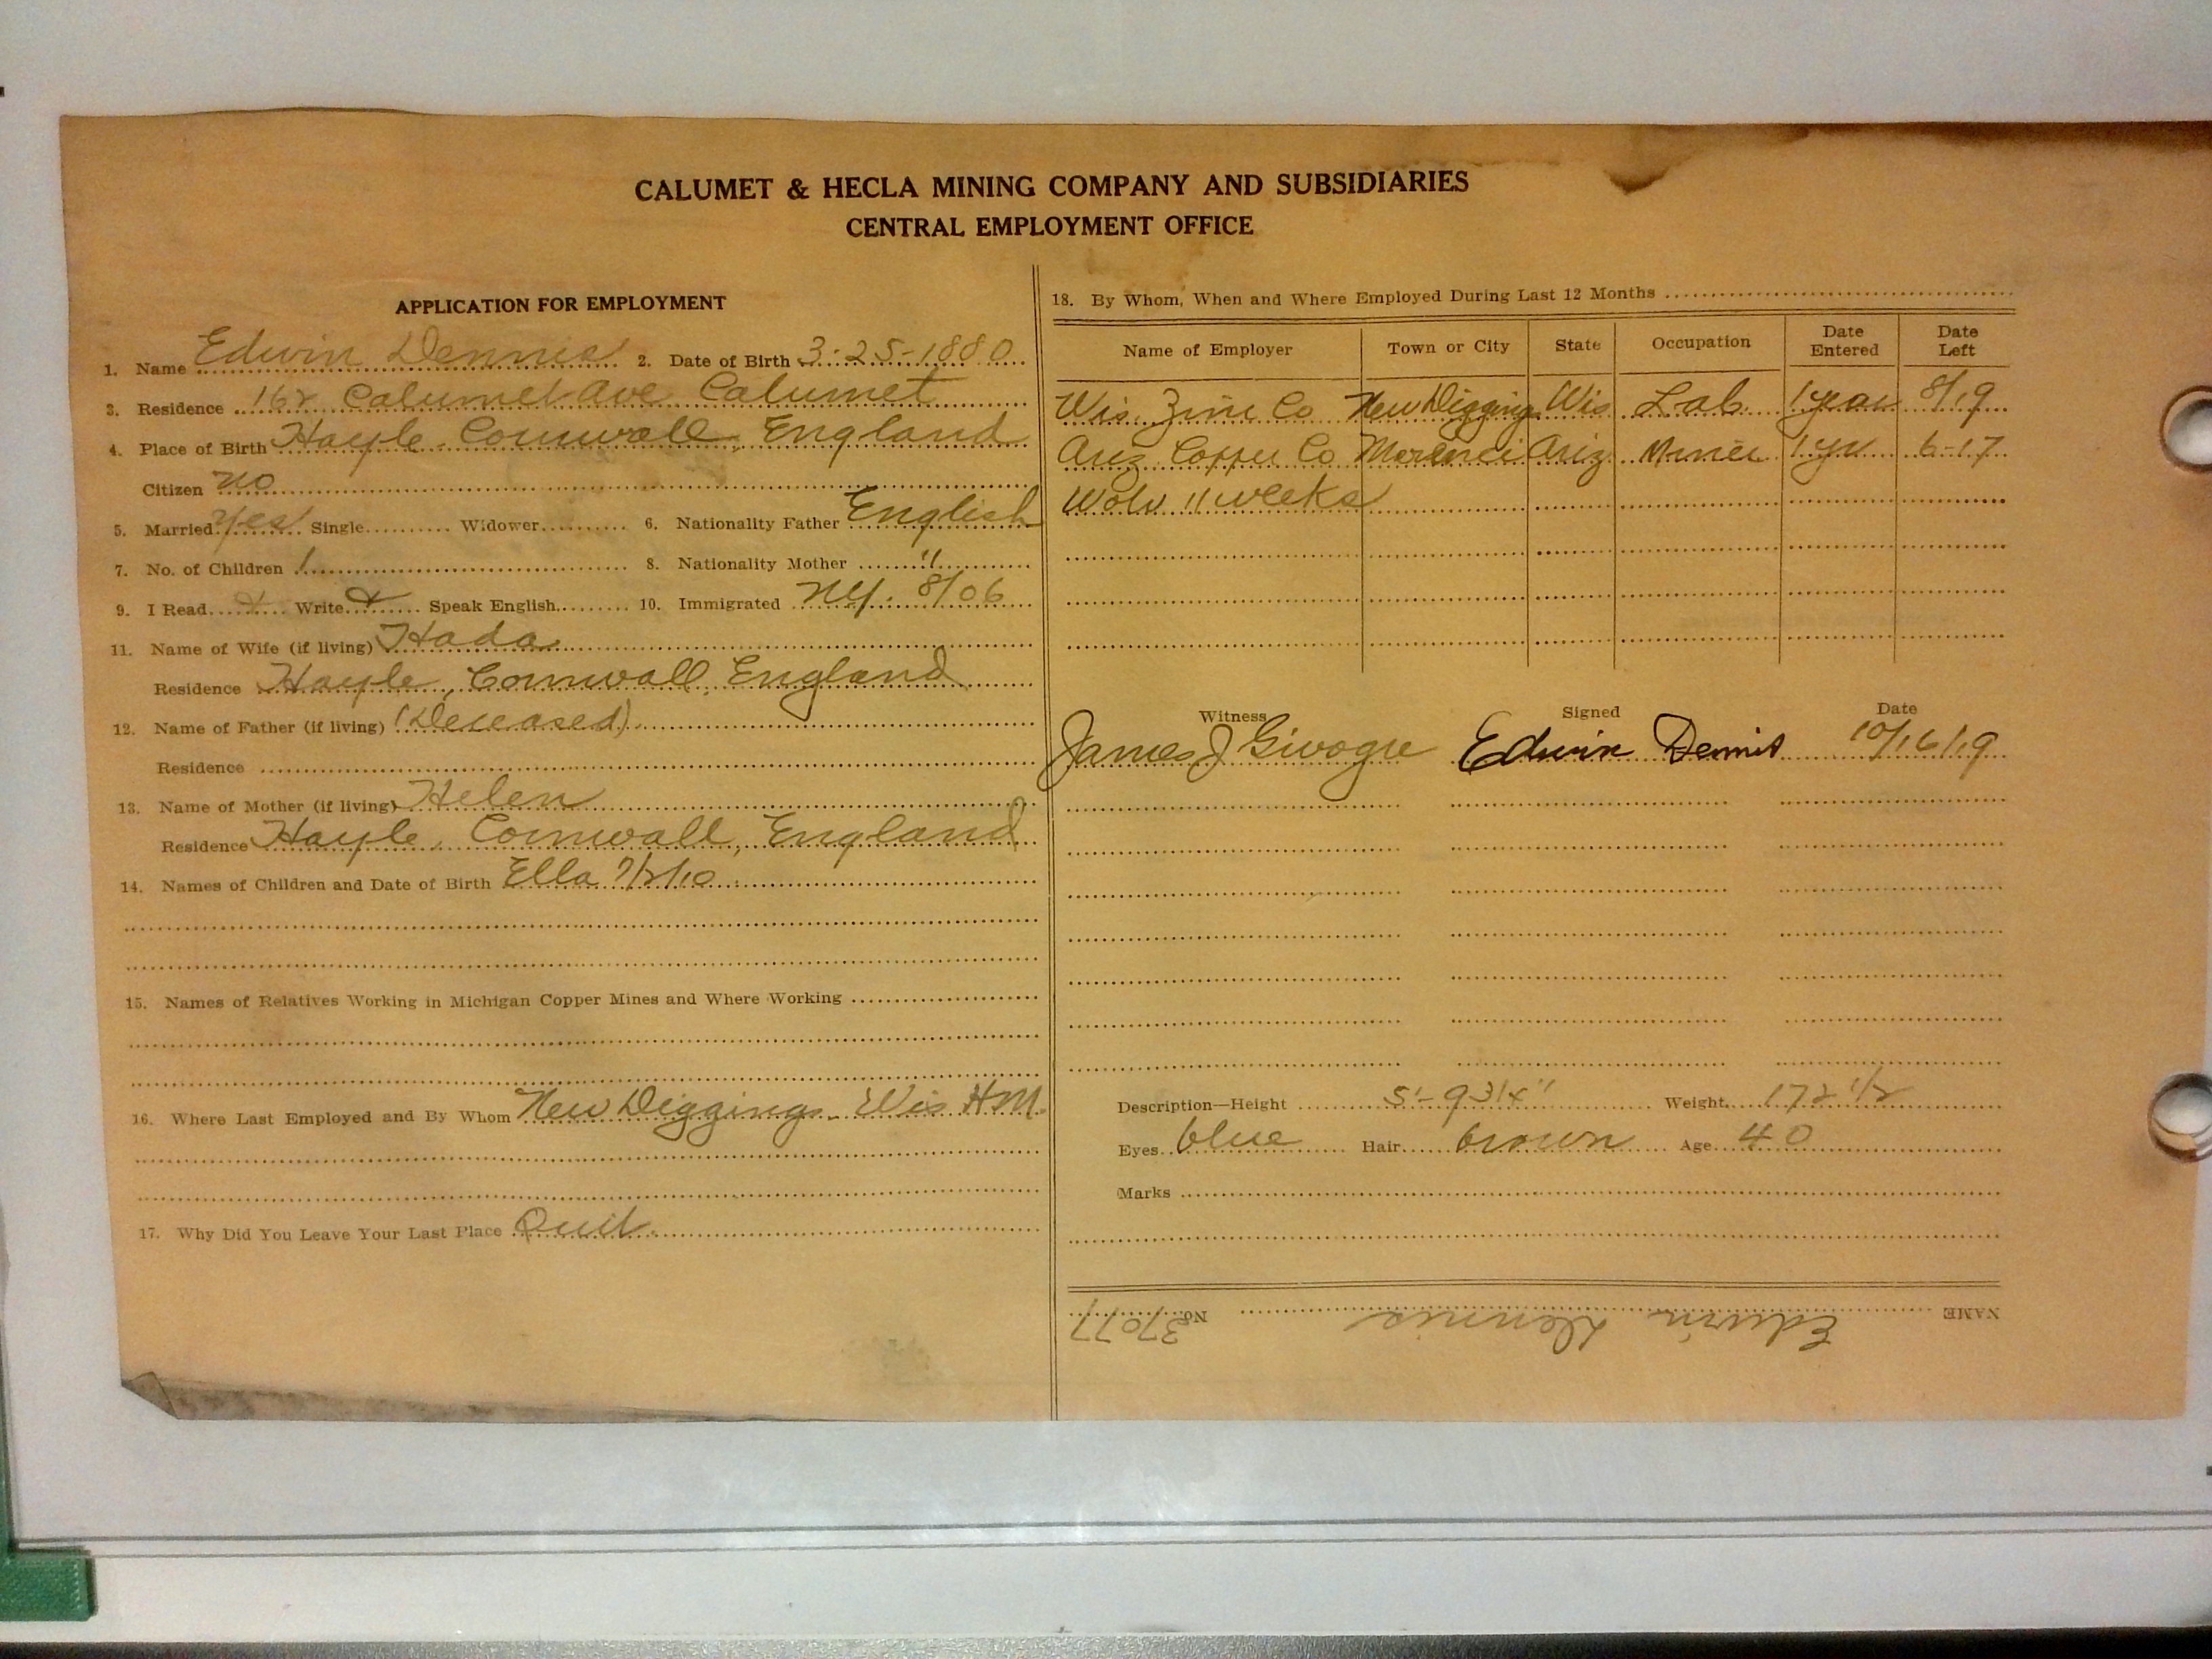 CALUMET & HECLA MINING COMPANY AND SUBSIDIARIES
CENTRAL EMPLOYMENT OFFICE
APPLICATION FOR EMPLOYMENT
1. Name Edwin Dennis 2. Date of Birth 3-25-1880
3. Residence 162 Calumet Ave Calumet
4. Place of Birth Hayle, Cornwall, England
Citizen no
5. Married Yes Single Widower 6. Nationality Father English
7. No. of Children 1 8. Nationality Mother "
9. I Read Write Speak English 10. Immigrated NY. 8/06
11. Name of Wife (if living) Hada
Residence Hayle, Cornwall, England
12. Name of Father (if living) (Deceased)
Residence
13. Name of Mother (if living) Helen
Residence Hayle, Cornwall, England
14. Names of Children and Date of Birth Ella 7/2/10
15. Names of Relatives Working in Michigan Copper Mines and Where Working
16. Where Last Employed and By Whom New Diggings Wis HM.
17. Why Did You Leave Your Last Place Quit
18. By Whom, When and Where Employed During Last 12 Months
Name of Employer Town or City State Occupation Date Entered Date Left
Wis. Zinc Co New Diggings Wis Lab. 1 year 8/19
Ariz Copper Co Morenci Ariz. Miner 1 yr 6-17
Wolv 11 weeks
Witness Signed Date
James J Edwin Dennis 10/16/19
Description—Height 5'-9 3/4" Weight 172 1/2
Eyes blue Hair brown Age 40
Marks
NAME Edwin Dennis No. 37077